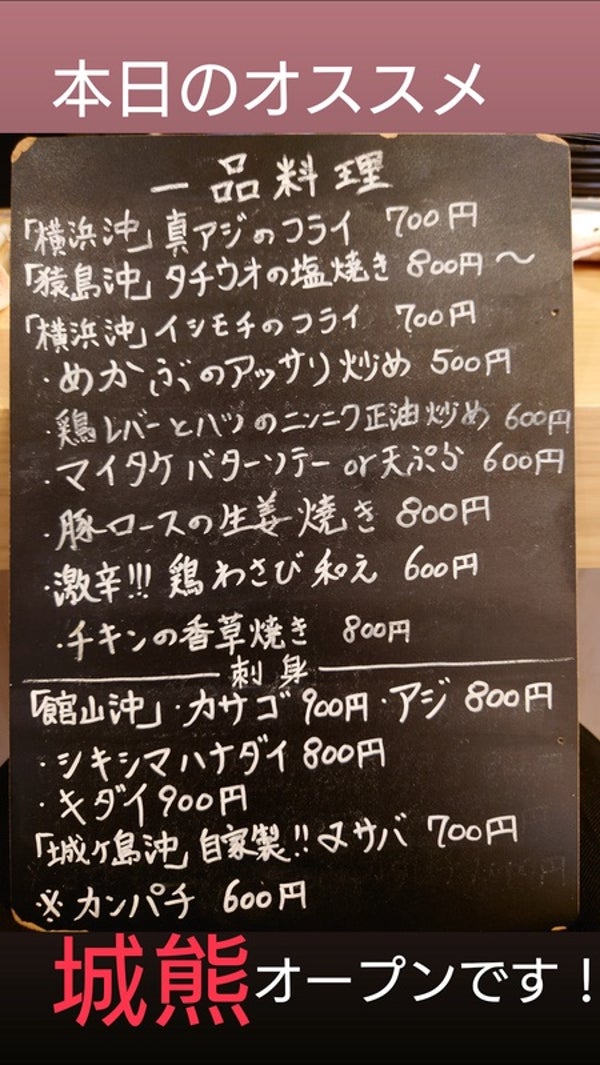 本日のオススメ
一品料理
「横浜沖」真アジのフライ 700円
「猿島沖」タチウオの塩焼き 800円〜
「横浜沖」イシモチのフライ 700円
・めかぶのアッサリ炒め 500円
・鶏レバーとハツのニンニク正油炒め 600円
・マイタケバターソテーor天ぷら 600円
・豚ロースの生姜焼き 800円
・激辛!!! 鶏わさび和え 600円
・チキンの香草焼き 800円
刺身
「館山沖」・カサゴ 900円・アジ 800円
・シキシマハナダイ 800円
・キダイ 900円
「城ヶ島沖」自家製!!〆サバ 700円
※カンパチ 600円
城熊オープンです！